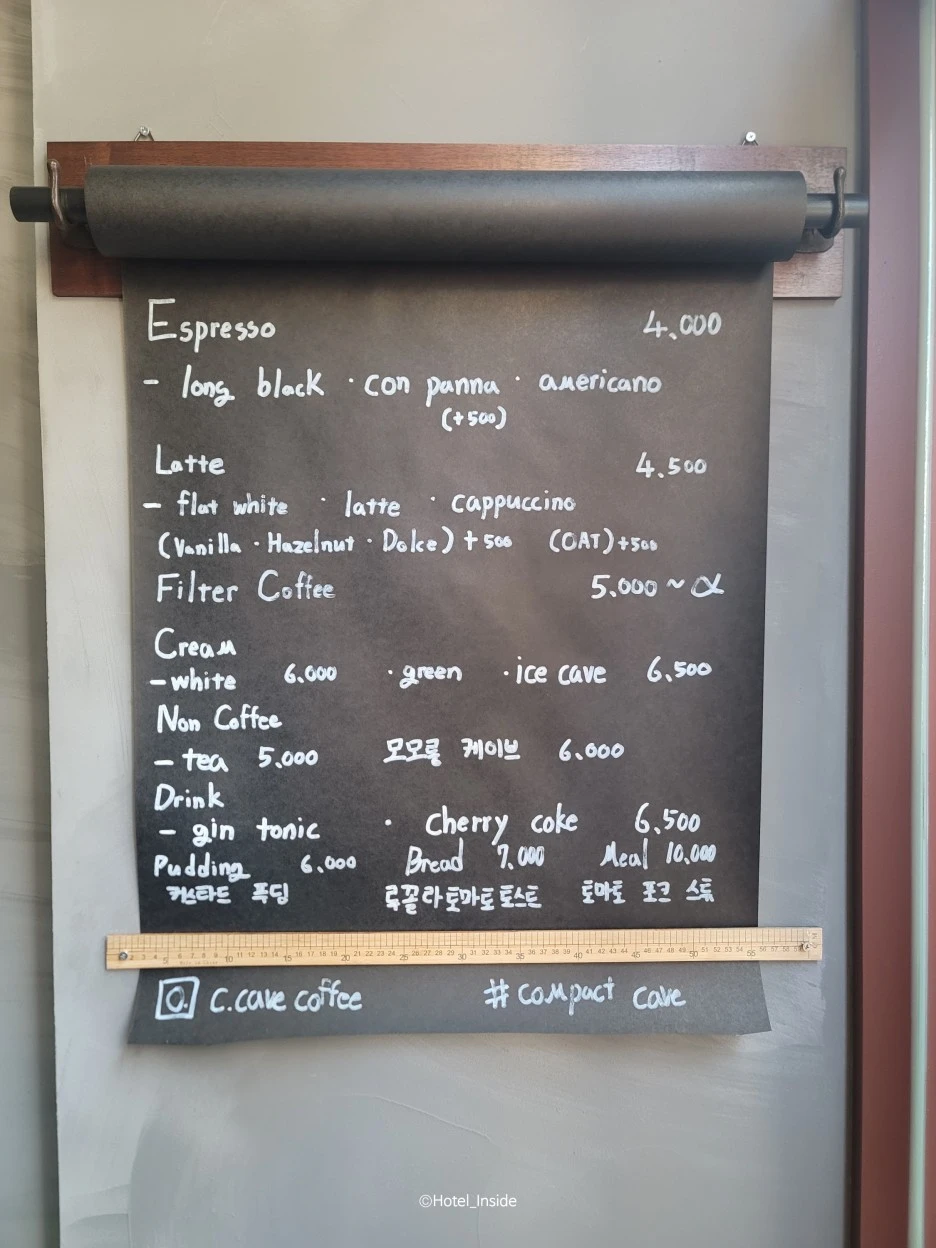 Espresso 4.000
- long black · con panna · americano
(+500)
Latte 4.500
- flat white · latte · cappuccino
(Vanilla · Hazelnut · Dolce) +500 (OAT) +500
Filter Coffee 5.000 ~ α
Cream
- white 6.000 · green · ice cave 6.500
Non Coffee
- tea 5.000 모모롤 케이브 6.000
Drink
- gin tonic · cherry coke 6.500
Pudding 6.000 Bread 7.000 Meal 10.000
커스타드 푹딩 루꼴라토마토토스트 토마토 포크 스튜
O. C.cave coffee # compact cave
©Hotel_Inside